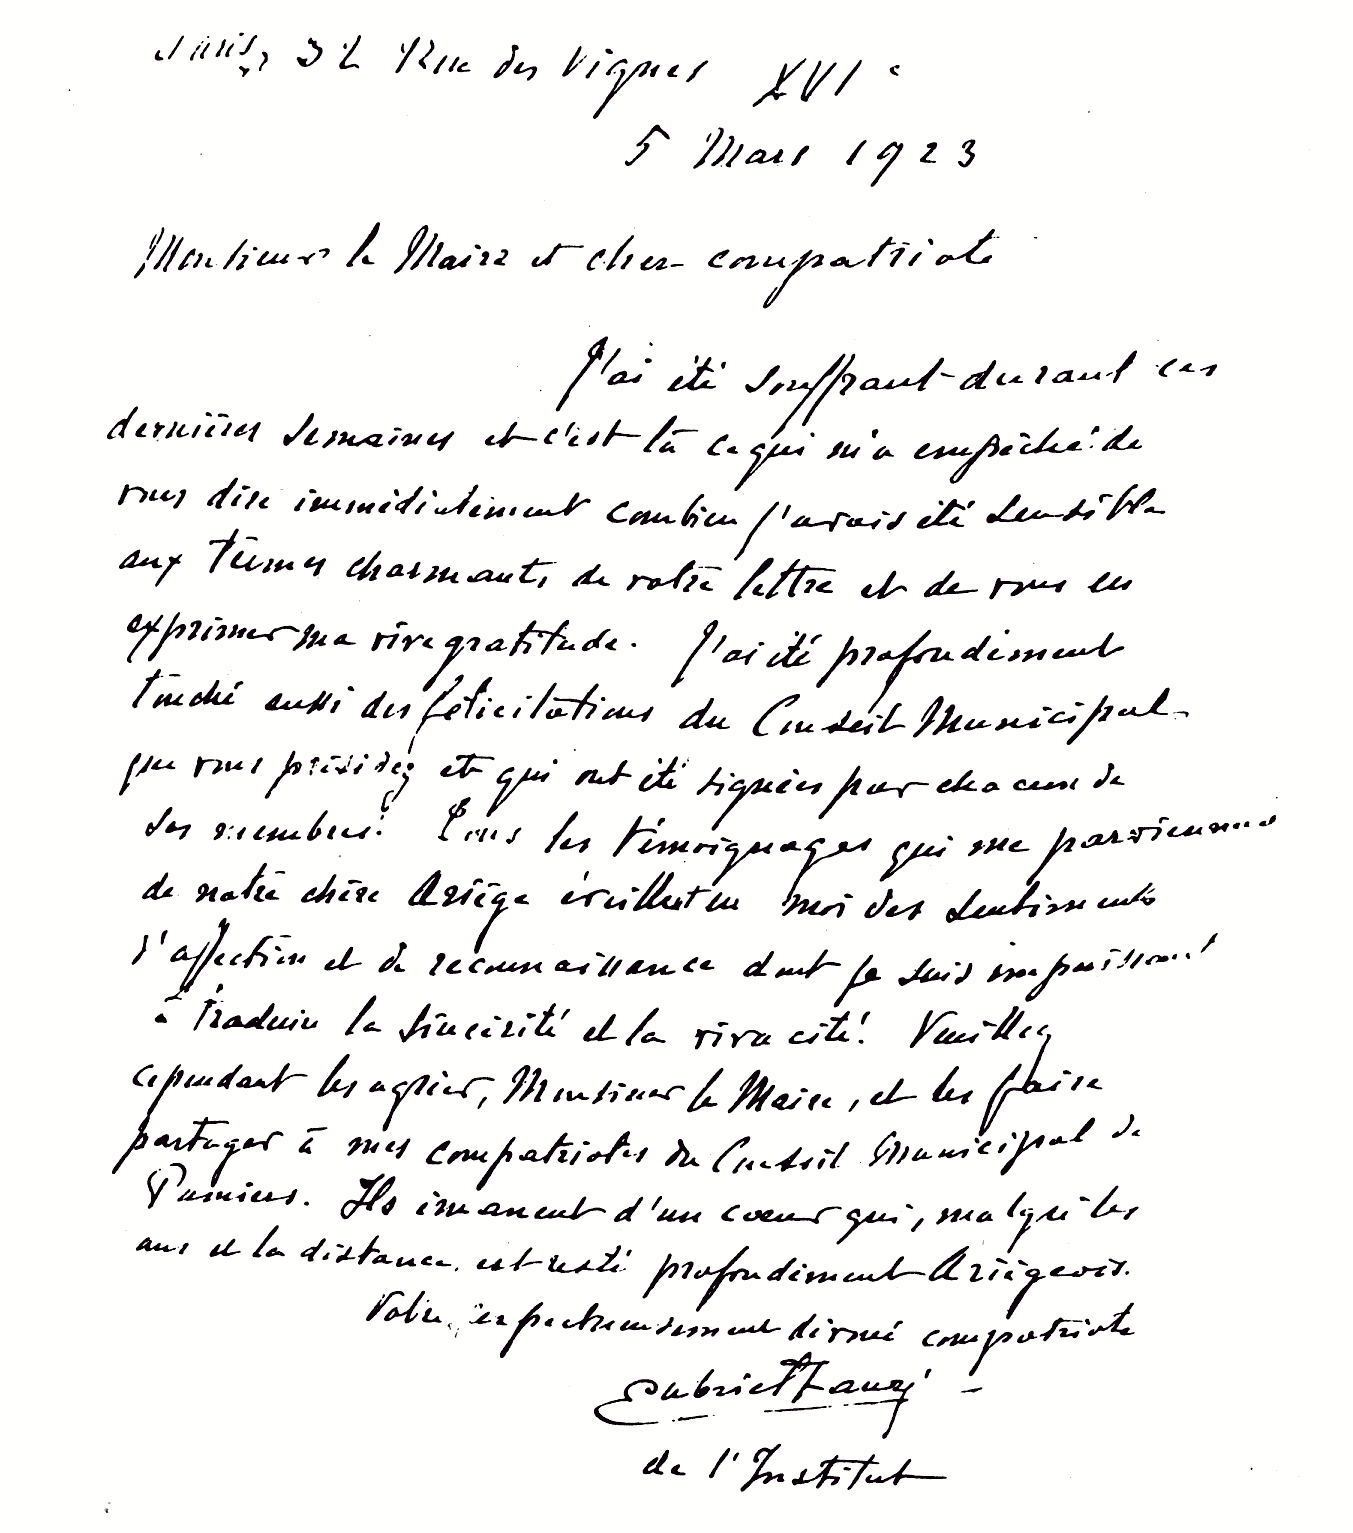 Paris, 32 Rue des Vignes XVIe
5 Mars 1923
Monsieur le Maire et cher compatriote
J'ai été souffrant durant ces
dernières semaines et c'est là ce qui m'a empêché de
vous dire immédiatement combien j'avais été sensible
aux termes charmants de votre lettre et de vous en
exprimer ma vive gratitude. J'ai été profondément
touché aussi des félicitations du Conseil Municipal
que vous présidez et qui ont été signées par chacun de
ses membres. Tous les témoignages qui me parviennent
de notre chère Ariège éveillent en moi des sentiments
d'affection et de reconnaissance dont je suis impuissant
à traduire la sincérité et la vivacité! Veuillez
cependant les agréer, Monsieur le Maire, et les faire
partager à mes compatriotes du Conseil Municipal de
Pamiers. Ils émanent d'un cœur qui, malgré les
ans et la distance, est resté profondément Ariégeois.
Votre respectueusement dévoué compatriote
Gabriel Fauré
de l'Institut